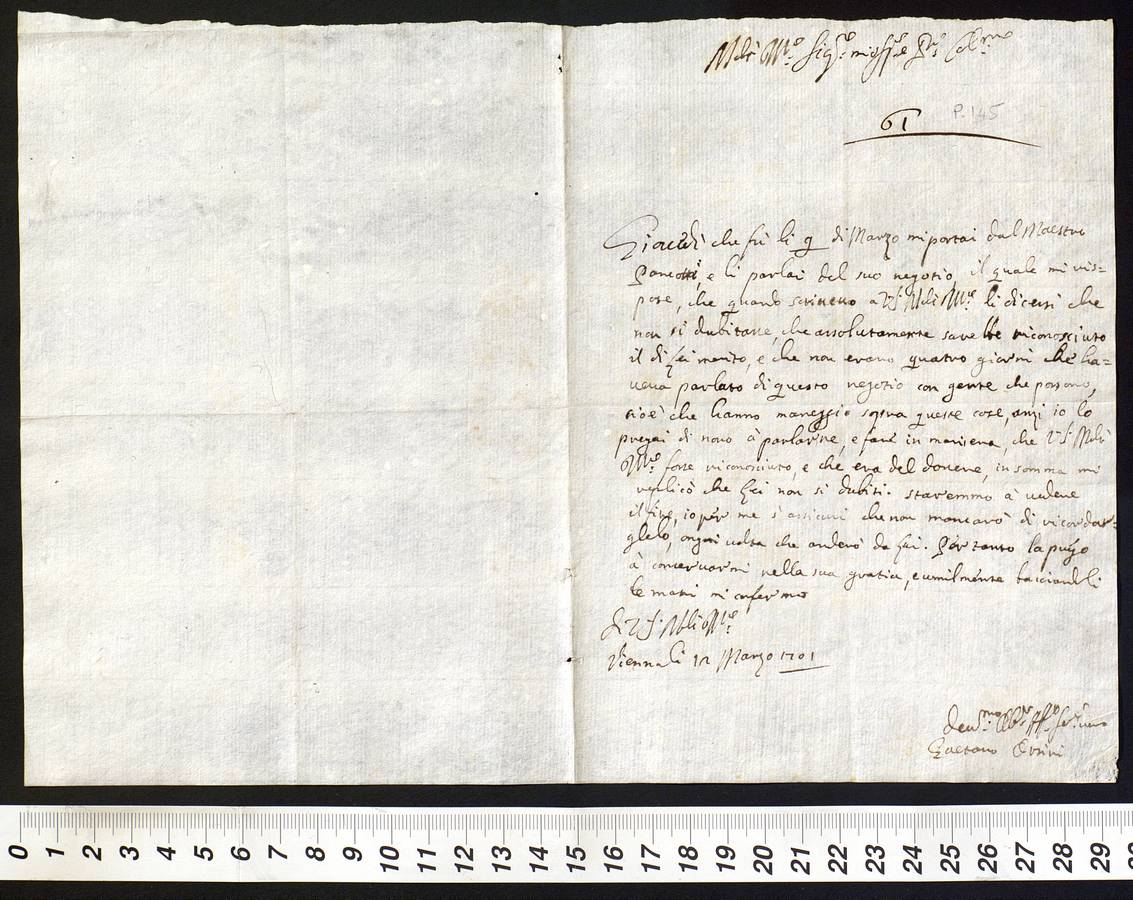 Molt' Ill.re Sig.re mio Sig.re P.ron Col.mo
61 P. 145
Giovedì che fù li 9 di Marzo mi portai dal Maestro
Pancotti, e li parlai del suo negotio, il quale mi ris=
pose, che quando scrivevo a V.S. Molt' Ill.re li dicessi che
non si dubitasse, che assolutamente sarebbe riconosciuto
il di Lei merito, e che non erano quatro giorni che ha=
veva parlato di questo negotio con gente che possono,
cioè che hanno maneggio sopra queste cose, anzi io lo
pregai di novo à parlarne, e fare in maniera, che V.S. Molt'
Ill.re fosse riconosciuto, e che era del dovere, in somma mi
replicò che Lei non si dubiti. staremmo à vedere
il fine, io per me s'assicuri che non mancarò di ricordar=
glelo, ongni volta che anderò da Lui. Per tanto la prego
à conservarmi nella sua gratia, e umilmente bacciandoli
le mani mi confermo
Di V.S. Molt' Ill.re
Vienna li 12 Marzo 1701
Dev.mo Obl.mo Aff.mo Ser.re vero
Gaetano Orsini
0 1 2 3 4 5 6 7 8 9 10 11 12 13 14 15 16 17 18 19 20 21 22 23 24 25 26 27 28 29